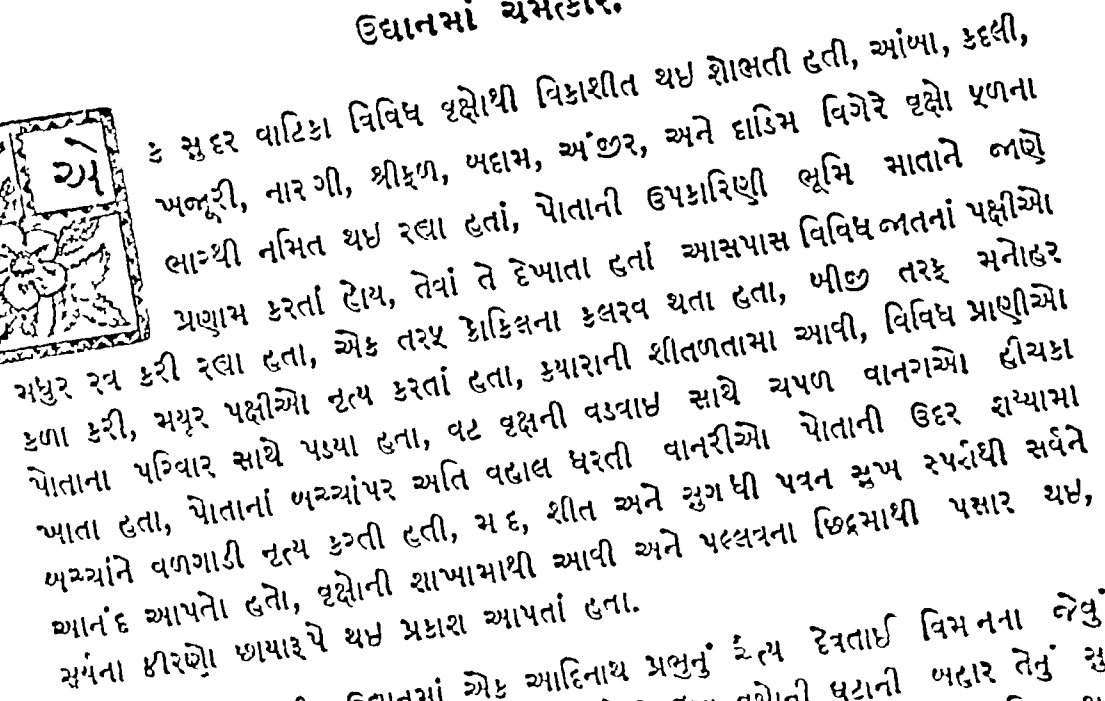 ઉદ્યાનમાં ચમત્કાર.
એ
ક સુદર વાટિકા વિવિધ વૃક્ષોથી વિકાશીત થઇ શોભતી હતી, આંબા, કદલી,
ખજૂરી, નારગી, શ્રીફળ, બદામ, અંજીર, અને દાડિમ વિગેરે વૃક્ષો પૂળના
ભારથી નમિત થઇ રહ્યા હતાં, પોતાની ઉપકારિણી ભૂમિ માતાને જાણે
પ્રણામ કરતાં હોય, તેવાં તે દેખાતા હતાં આસપાસ વિવિધ જાતનાં પક્ષીઓ
મધુર રવ કરી રહ્યા હતા, એક તરફ કોકિલના કલરવ થતા હતા, બીજી તરફ મનોહર
કળા કરી, મયૂર પક્ષીઓ નૃત્ય કરતાં હતા, કયારાની શીતળતામા આવી, વિવિધ પ્રાણીઓ
પોતાના પરિવાર સાથે પડયા હતા, વટ વૃક્ષની વડવાઇ સાથે ચપળ વાનગઓ હીચકા
ખાતા હતા, પોતાનાં બચ્ચાંપર અતિ વહાલ ધરતી વાનરીઓ પોતાની ઉદર શય્યામા
બચ્ચાંને વળગાડી નૃત્ય કરતી હતી, મદ, શીત અને સુગધી પવન સુખ સ્પર્શથી સર્વને
આનંદ આપતો હતો, વૃક્ષોની શાખામાથી આવી અને પલ્લવના છિદ્રમાથી પસાર થઇ,
સૂર્યના કીરણો છાયારૂપે થઇ પ્રકાશ આપતાં હતા.
એક આદિનાથ પ્રભુનું ચૈત્ય દેવતાઈ વિમનના જેવું
વૃક્ષોની ઘટાની બહાર તેનું